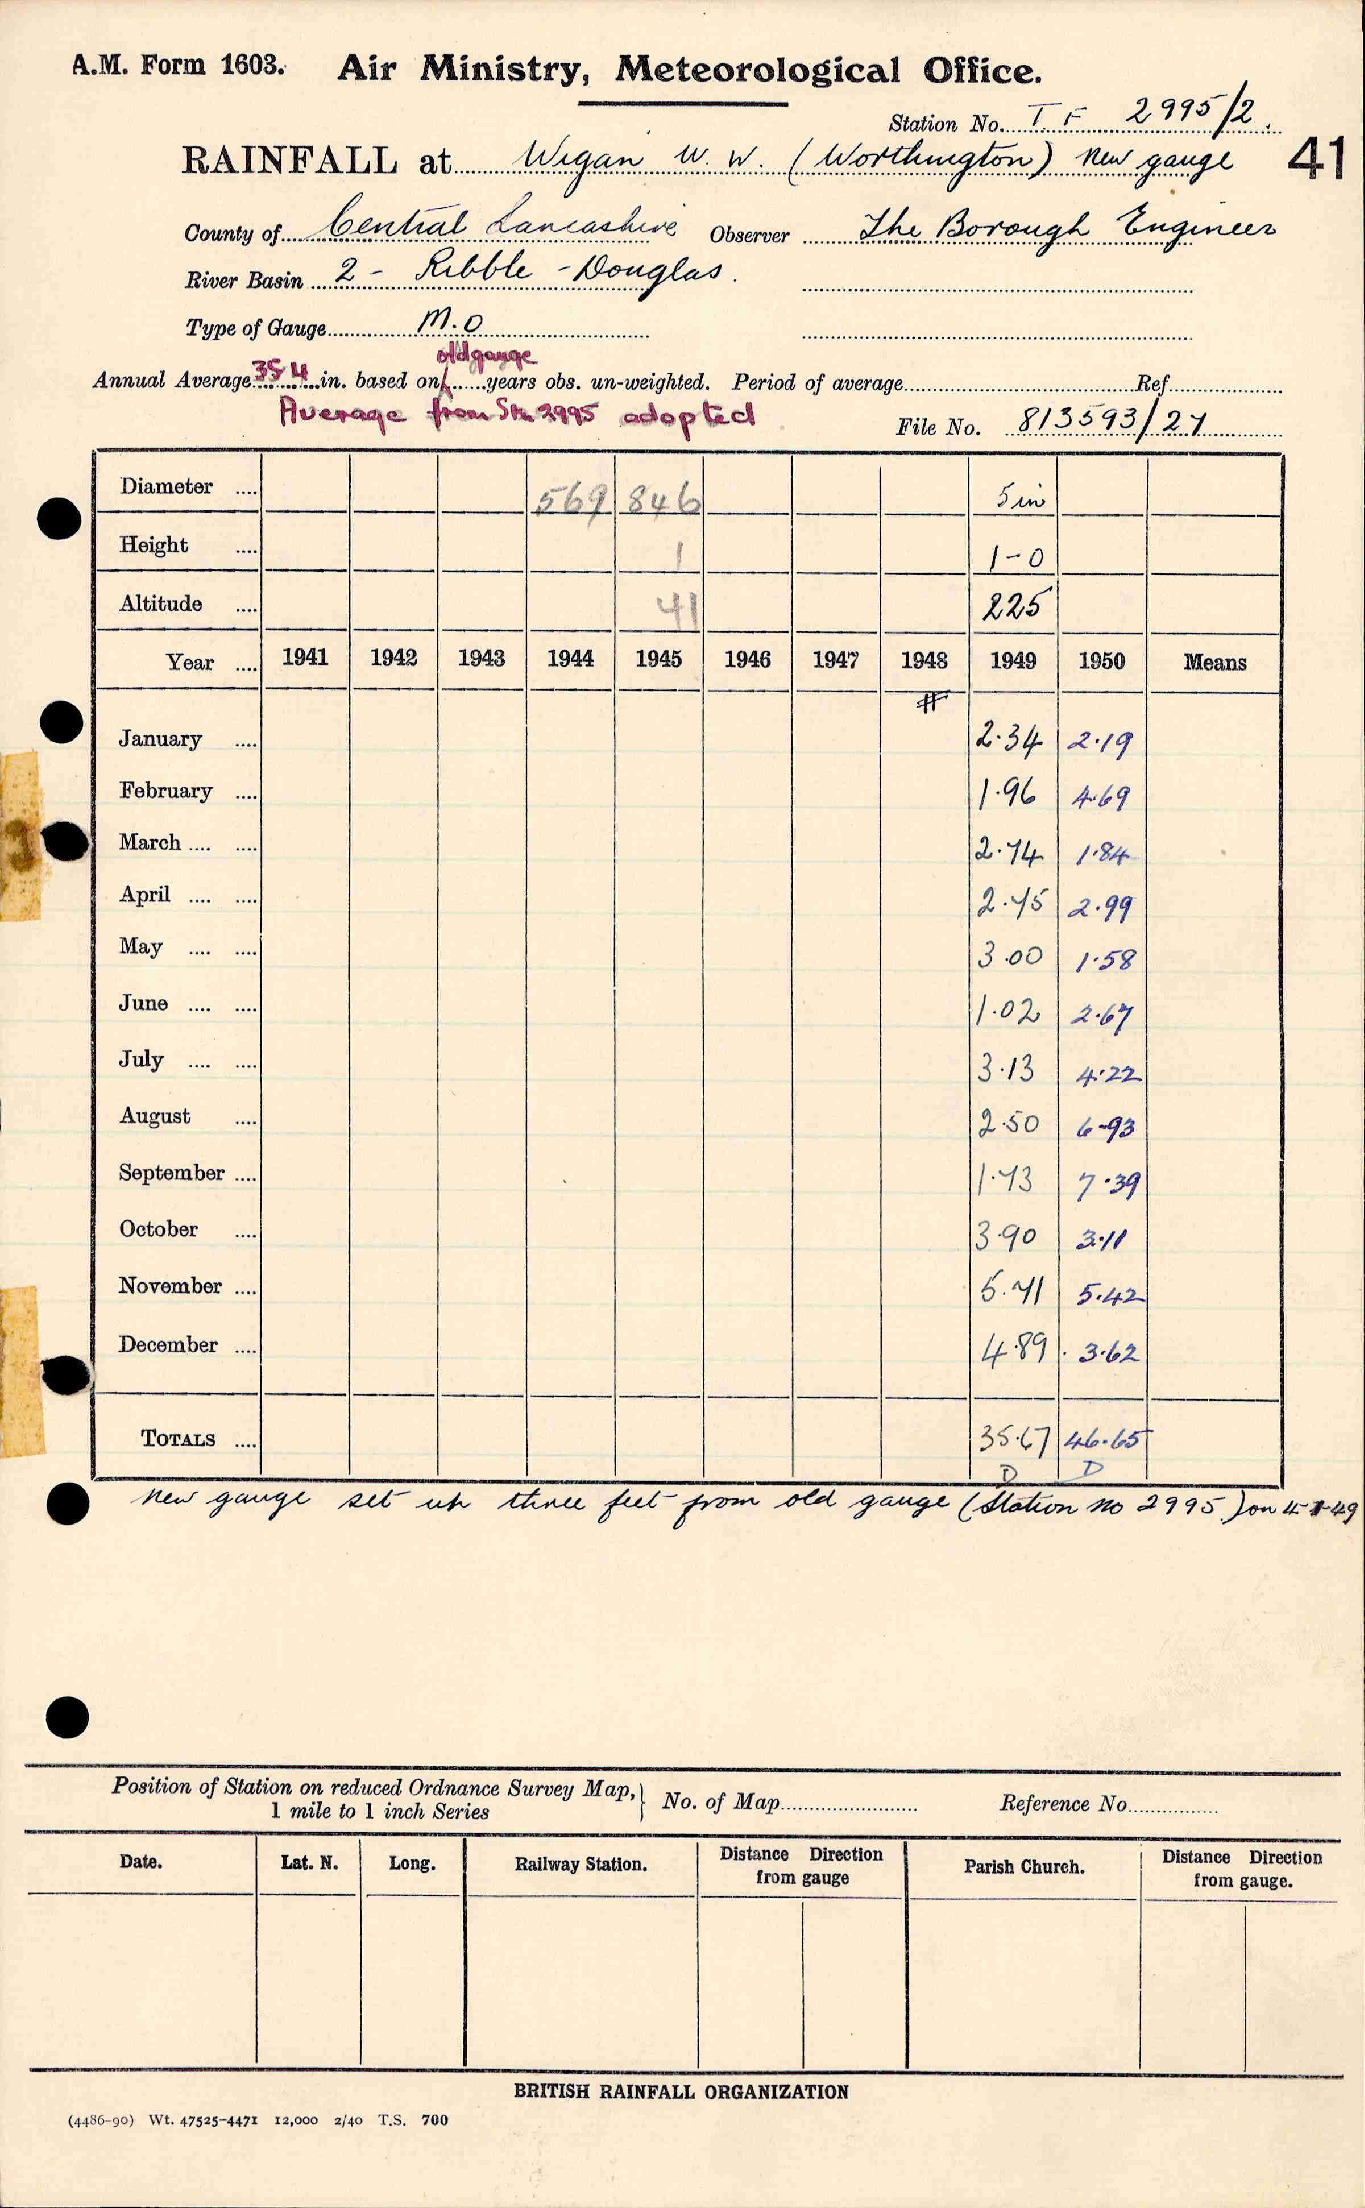 A.M. Form 1603. Air Ministry, Meteorological Office.
Station No. T F 2995/2.
RAINFALL at Wigan W. W. (Worthington) New gauge 41
County of Central Lancashire Observer The Borough Engineer
River Basin 2 - Ribble - Douglas.
Type of Gauge M.O
old gauge
Annual Average 35.4 in. based on years obs. un-weighted. Period of average Ref
Average from Stn 2995 adopted
File No. 813593/27
Diameter .... 569 846 5 in
Height .... 1 1-0
Altitude .... 41 225
Year .... 1941 1942 1943 1944 1945 1946 1947 1948 1949 1950 Means
#
January .... 2.34 2.19
February .... 1.96 4.69
March .... .... 2.74 1.84
April .... .... 2.75 2.99
May .... .... 3.00 1.58
June .... .... 1.02 2.67
July .... .... 3.13 4.22
August .... 2.50 6.93
September .... 1.73 7.39
October .... 3.90 3.11
November .... 5.71 5.42
December .... 4.89 3.62
TOTALS .... 35.67 46.65
D D
New gauge set up three feet from old gauge (Station no 2995) on 4-1-49
Position of Station on reduced Ordnance Survey Map, } No. of Map Reference No
1 mile to 1 inch Series
Date. Lat. N. Long. Railway Station. Distance Direction from gauge Parish Church. Distance Direction from gauge.
BRITISH RAINFALL ORGANIZATION
(4486-90) Wt. 47525-4471 12,000 2/40 T.S. 700